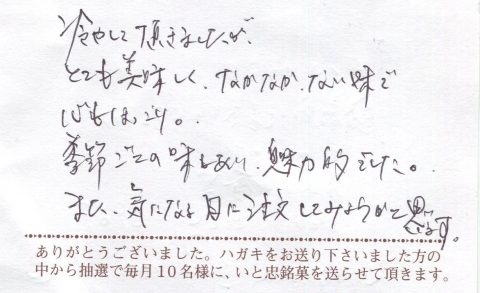 冷やして頂きましたが、
とても美味しく、なかなか、ない味で
心もほっこり。
季節ごとの味もあり、魅力的でした。
また、気になる月に注文してみようかと思います。
ありがとうございました。ハガキをお送り下さいました方の
中から抽選で毎月10名様に、いと忠銘菓を送らせて頂きます。